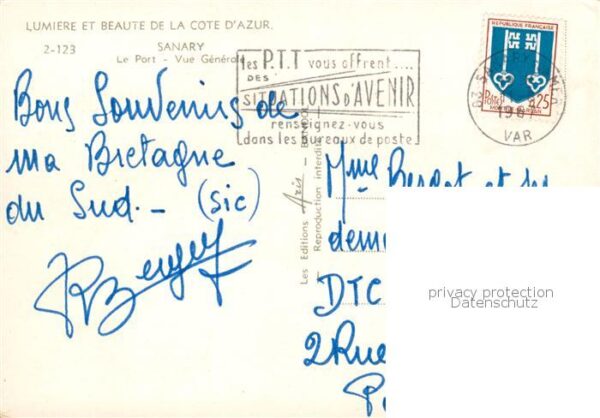 LUMIERE ET BEAUTE DE LA COTE D'AZUR.
2-123
SANARY
Le Port - Vue Générale
les P.T.T vous offrent....
DES
SITUATIONS D'AVENIR
renseignez-vous
dans les bureaux de poste
REPUBLIQUE FRANÇAISE
Postes 0,25
MONT-DE-MARSAN
VAR
Bons Souvenirs de
ma Bretagne
du Sud. - (sic)
Les Editions Aris - BANDOL
Reproduction interdite
Mme et
DTC
2 Rue
privacy protection
Datenschutz